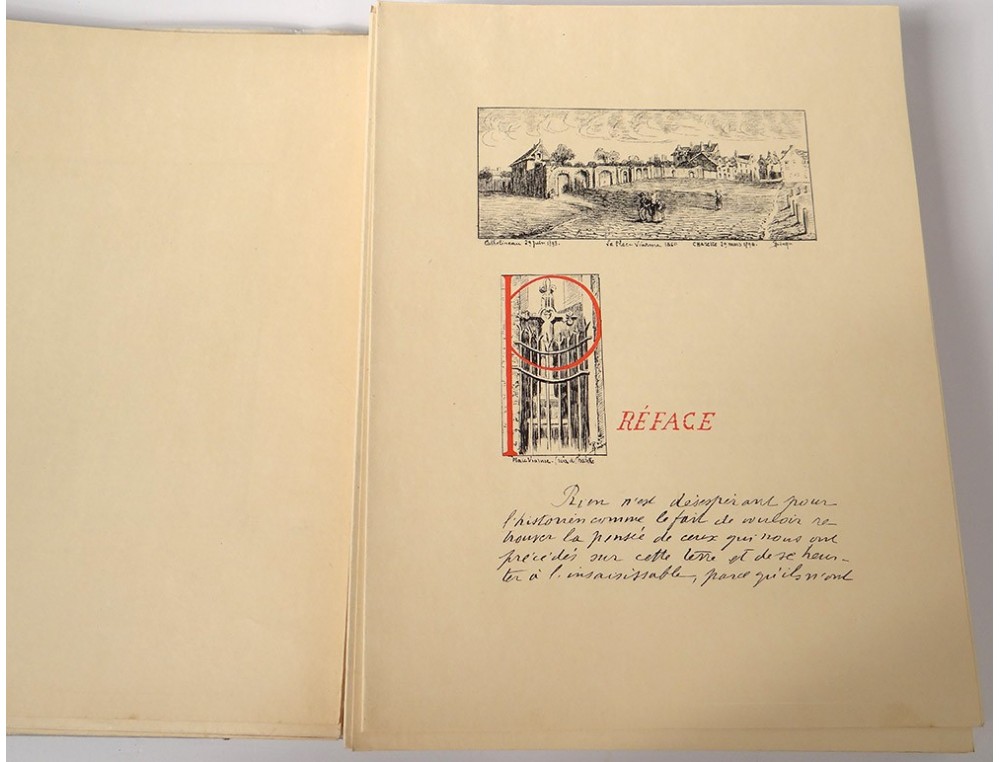 Cathelineau 29 juin 1793. La Place Viarme 1860 CHARETTE 29 mars 1796
PRÉFACE
Place Viarme. Croix de Charette
Rien n'est désespérant pour
l'historien comme le fait de vouloir re-
trouver la pensée de ceux qui nous ont
précédés sur cette terre et de se heur-
ter à l'insaisissable, parce qu'ils n'ont